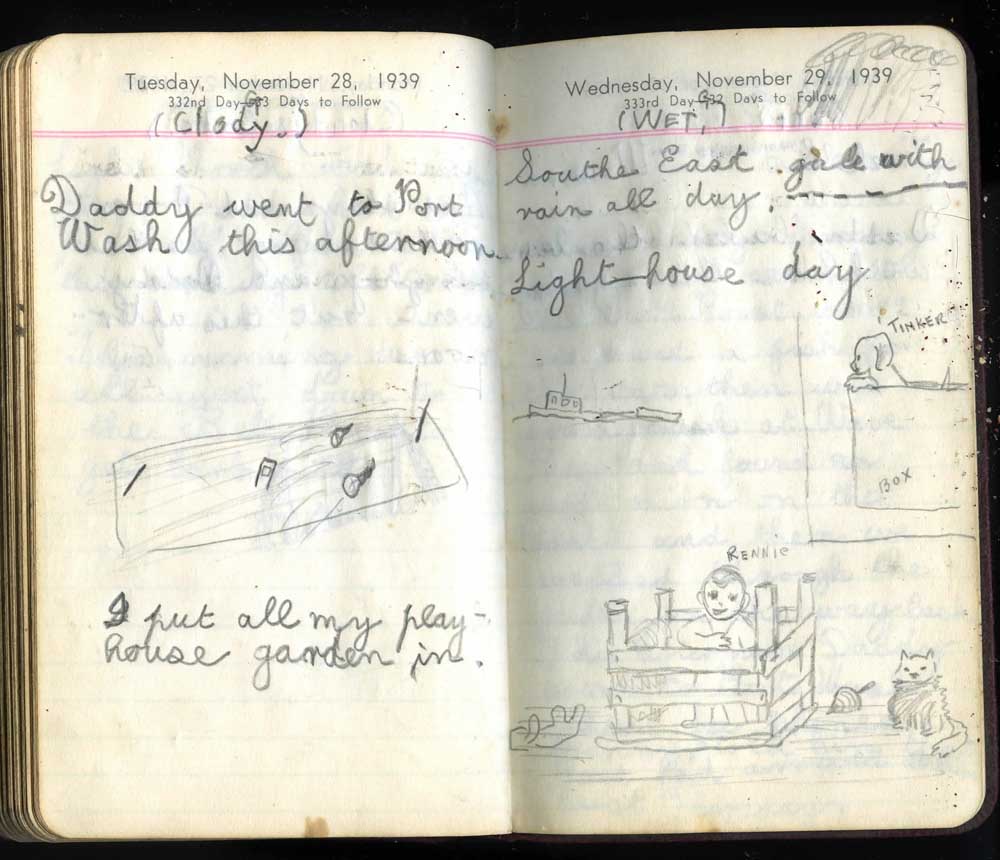 Tuesday, November 28, 1939
332nd Day—33 Days to Follow
(Clody.)
Daddy went to Port
Wash this afternoon.
I put all my play-
house garden in.
Wednesday, November 29, 1939
333rd Day—32 Days to Follow
(WET.)
Southe East gale with
rain all day.
Light-house day
TINKER
BOX
RENNIE